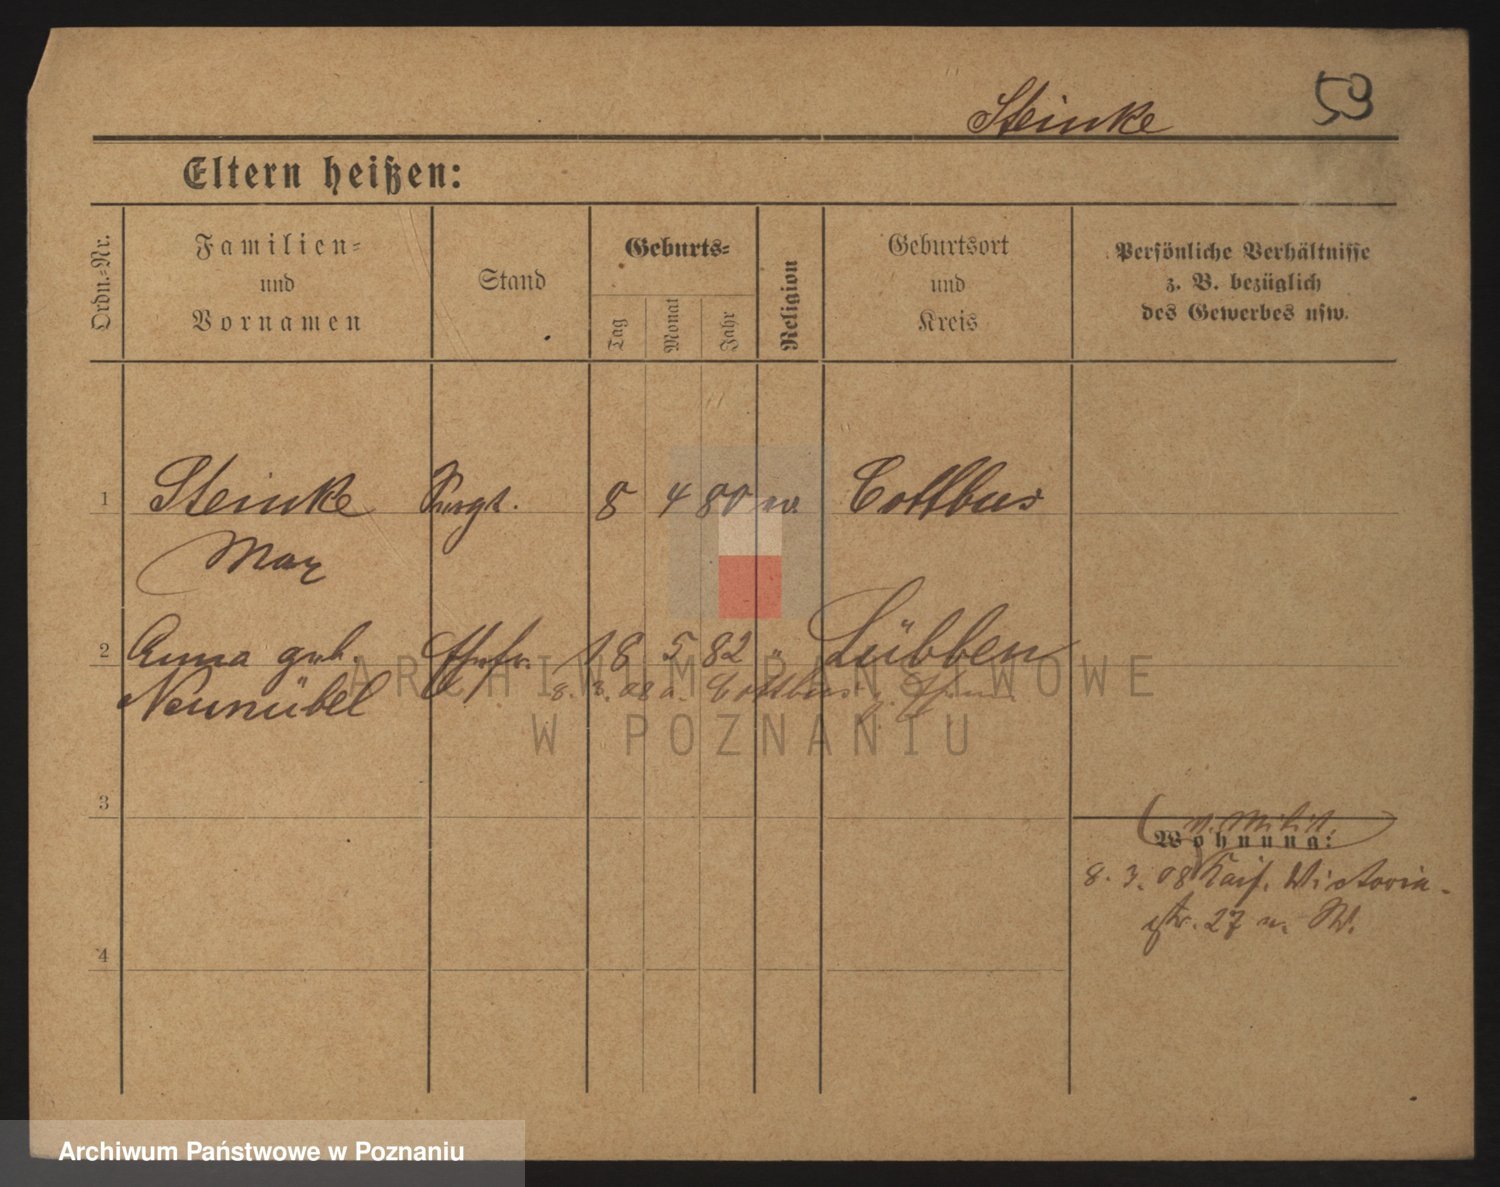 Steinke 59
Eltern heißen:
Ordn.-Nr.
Familien-
und
Vornamen
Stand
Geburts-
Tag
Monat
Jahr
Religion
Geburtsort
und
Kreis
Persönliche Verhältnisse
z. B. bezüglich
des Gewerbes usw.
1 Steinke 8 4 80 ev. Cottbus
Max
2 Anna geb. Ehefr. 18 5 82 " Lübben
Neunübel 8. 3. 08 a. Cottbus
ARCHIWUM PAŃSTWOWE
W POZNANIU
3
v. Milit.
Wohnung:
8. 3. 08 Kais. Victoria-
str. 27 W.
4
Archiwum Państwowe w Poznaniu